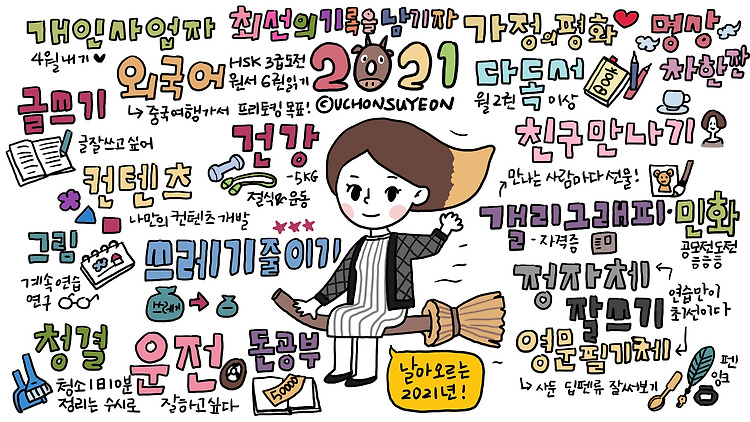 개인사업자
4월내기♥
최선의기록을남기자
가정의평화
명상
외국어
HSK 3급도전
원서 6권읽기
↳ 중국여행가서 프리토킹 목표!
2021
©UCHONSUYEON
다독서
월 2권 이상
BOOK
차한잔
글쓰기
글잘쓰고싶어
건강
-5KG
절식&운동
친구만나기
만나는 사람마다 선물!
컨텐츠
나만의 컨텐츠 개발
캘리그래피·민화
- 자격증
공모전도전
그림
계속연습
연구
쓰레기줄이기
쓰레기
정자체
잘쓰기
연습만이
최선이다
영문필기체
↳ 사둔 딥펜류 잘써보기
펜
잉크
청결
청소1일10분
정리는 수시로
운전
잘하고싶다
돈공부
50000
날아오르는
2021년!